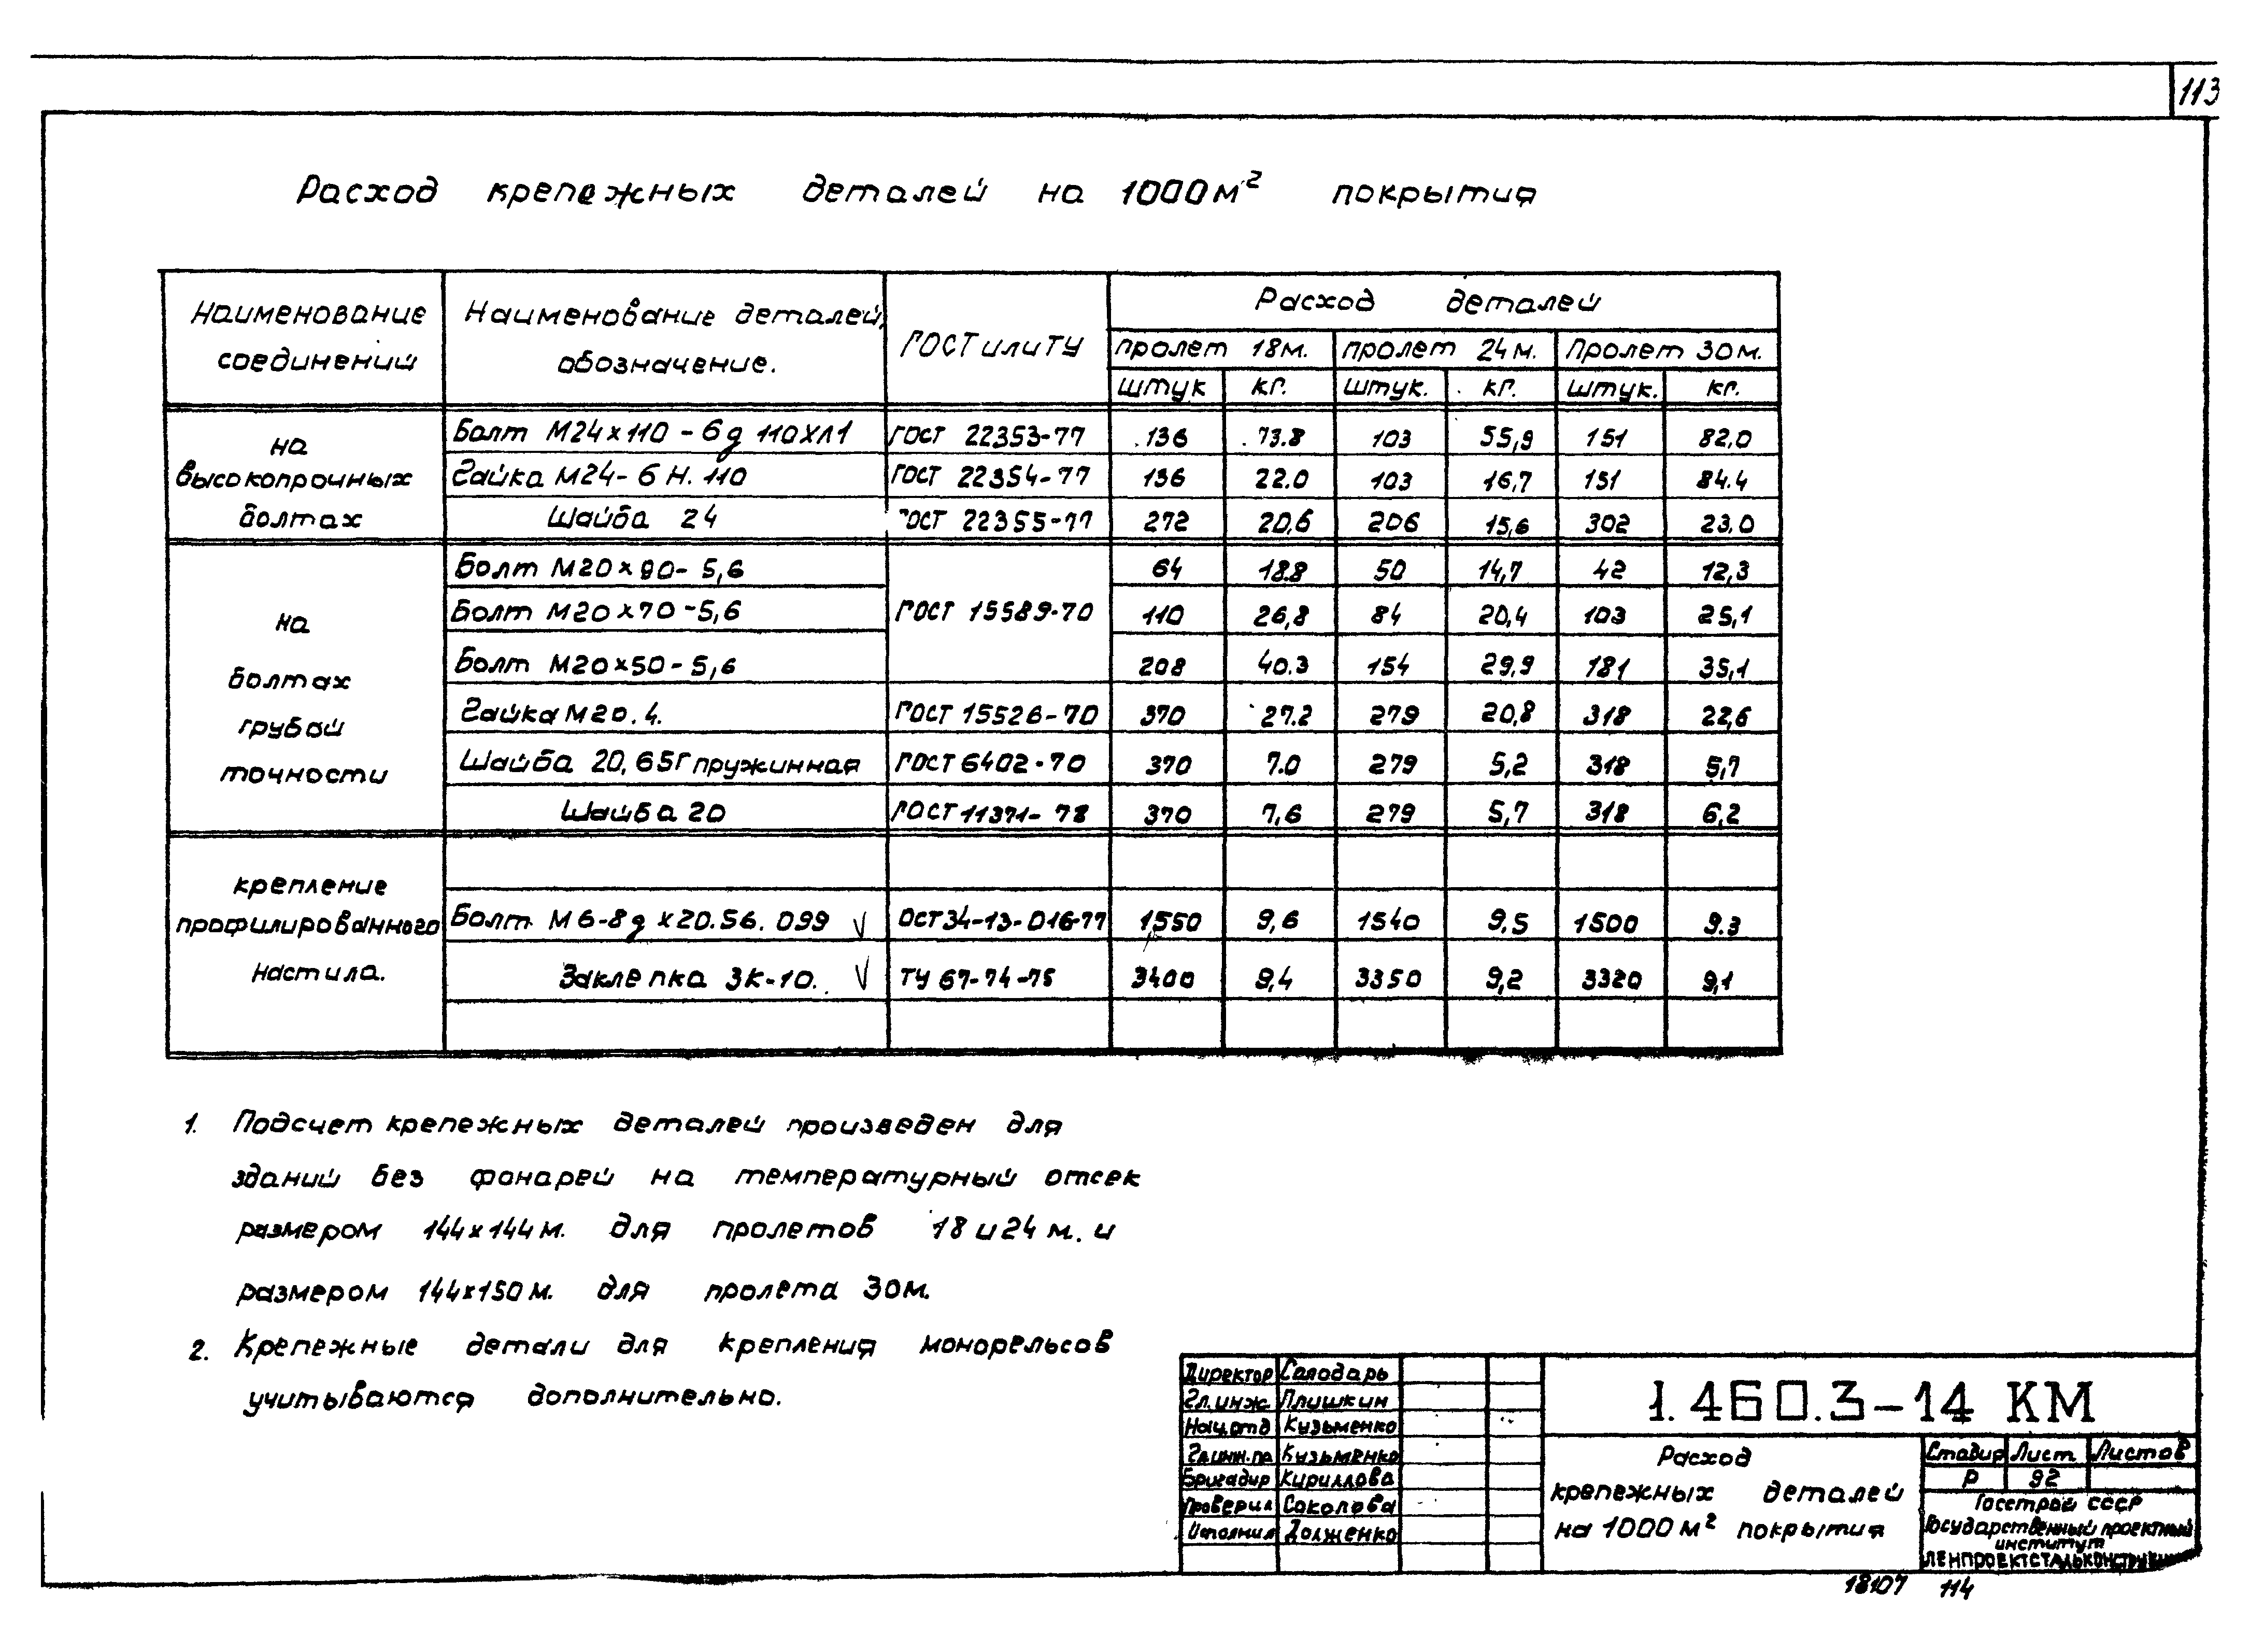 113
Расход крепежных деталей на 1000м²  покрытия
Наименование соединений | Наименование деталей, обозначение. | ГОСТ или ТУ | Расход деталей
пролет 18м. | пролет 24м. | Пролет 30м.
штук | кг. | штук. | кг. | штук. | кг.
на высокопрочных болтах
Болт М24х110-6g 110ХЛ1 | ГОСТ 22353-77 | 136 | 73.8 | 103 | 55,9 | 151 | 82.0
Гайка М24-6Н.110 | ГОСТ 22354-77 | 136 | 22.0 | 103 | 16,7 | 151 | 84.4
Шайба 24 | ГОСТ 22355-77 | 272 | 20,6 | 206 | 15,6 | 302 | 23.0
на болтах грубой точности
Болт М20х90-5,6 | 64 | 18.8 | 50 | 14,7 | 42 | 12,3
Болт М20х70-5,6 | ГОСТ 15589-70 | 110 | 26,8 | 84 | 20,4 | 103 | 25,1
Болт М20х50-5,6 | 208 | 40.3 | 154 | 29,9 | 181 | 35,1
Гайка М20.4. | ГОСТ 15526-70 | 370 | 27.2 | 279 | 20,8 | 318 | 22,6
Шайба 20,65Г пружинная | ГОСТ 6402-70 | 370 | 7.0 | 279 | 5,2 | 318 | 5,7
Шайба 20 | ГОСТ 11371-78 | 370 | 7,6 | 279 | 5,7 | 318 | 6,2
крепление профилированного настила.
Болт М6-8g х20.56.099 | ОСТ 34-13-016-77 | 1550 | 9,6 | 1540 | 9,5 | 1500 | 9.3
Заклепка ЗК-10. | ТУ 67-74-75 | 3400 | 9,4 | 3350 | 9,2 | 3320 | 9,1
1. Подсчет крепежных деталей произведен для
зданий без фонарей на температурный отсек
размером 144х144м. для пролетов 18 и 24 м. и
размером 144х150м. для пролета 30м.
2. Крепежные детали для крепления монорельсов
учитываются дополнительно.
Директор Салодарь
Гл.инж. Плишкин
Нач.отд Кузьменко
Гл.инж.пр Кузьменко
Бригадир Кириллова
Проверил Соколова
Исполнил Долженко
1.460.3-14 КМ
Расход
крепежных деталей
на 1000 м² покрытия
Стадия Лист Листов
Р 92
Госстрой СССР
Государственный проектный
институт
ЛЕНПРОЕКТСТАЛЬКОНСТРУКЦИЯ
18107 114